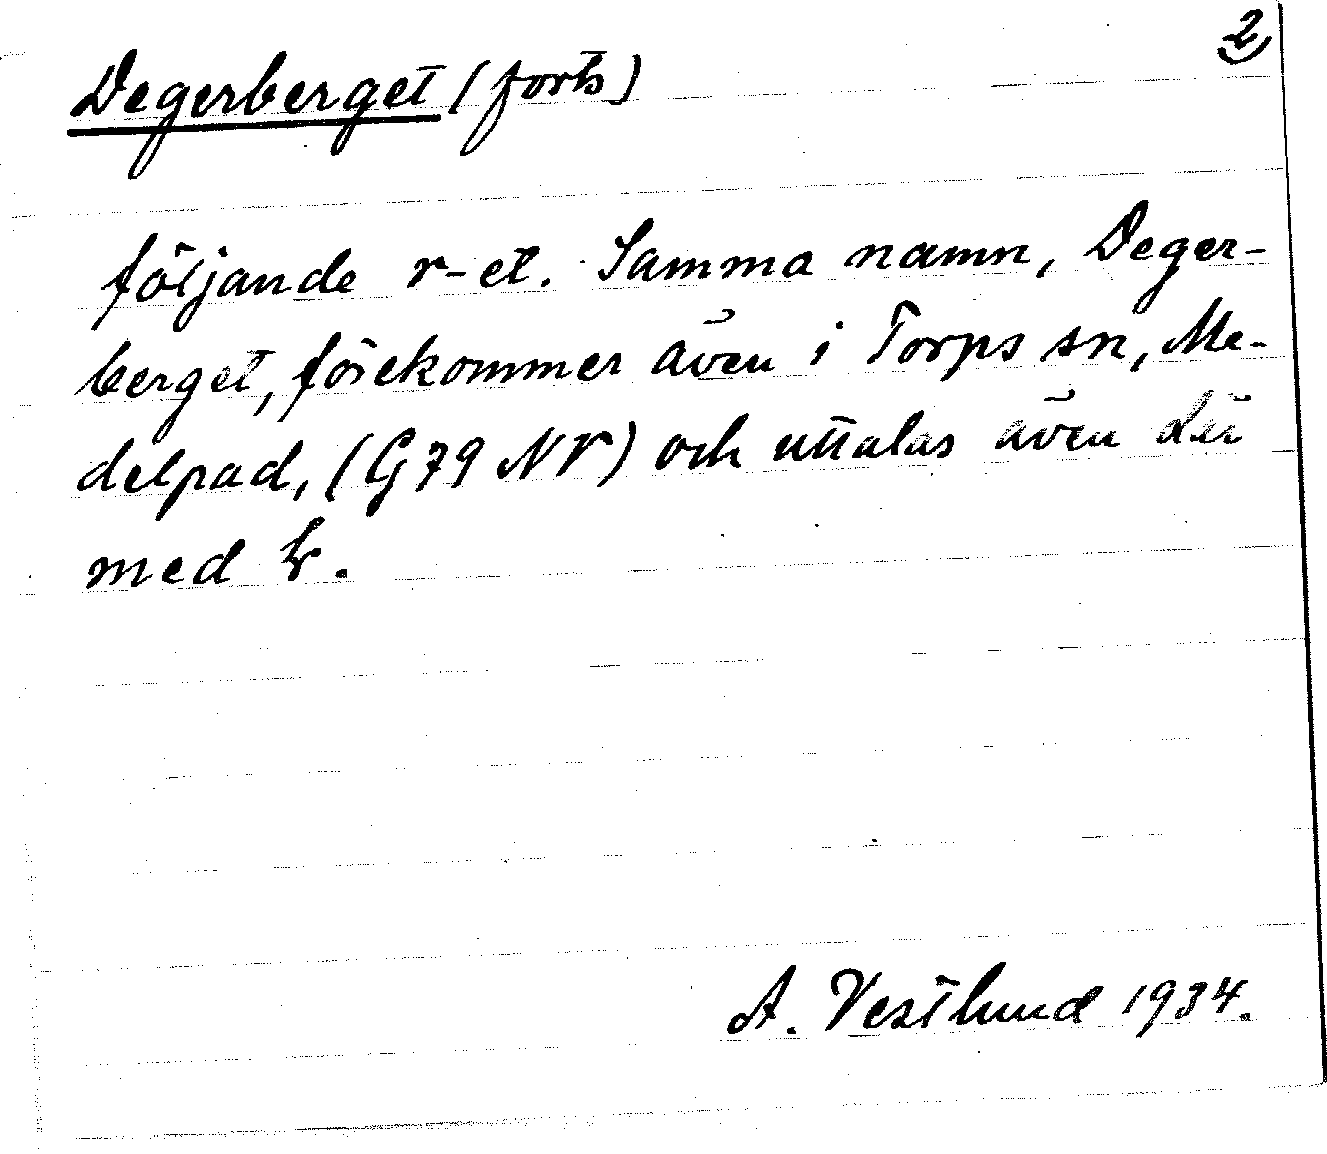 2
Degerberget (forts)
följande r-et. Samma namn, Deger-
berget, förekommer även i Torps sn, Me-
delpad, (G79 NV) och uttalas även där
med
A. Vestlund 1934.